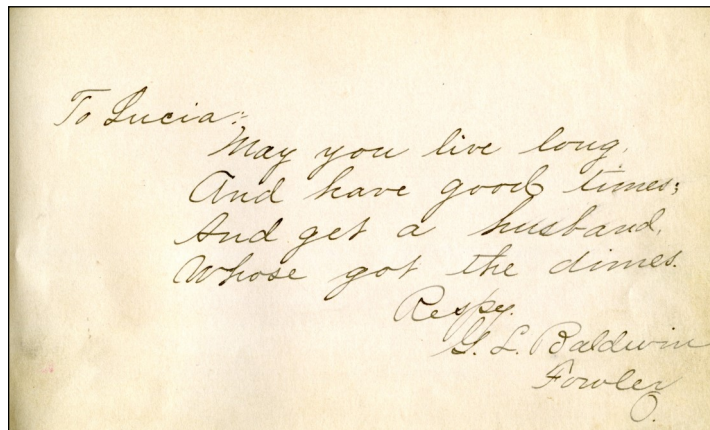 To Lucia:-
May you live long,
And have good times;
And get a husband,
Whose got the dimes.
Respy.
G. L. Baldwin
Fowler
O.